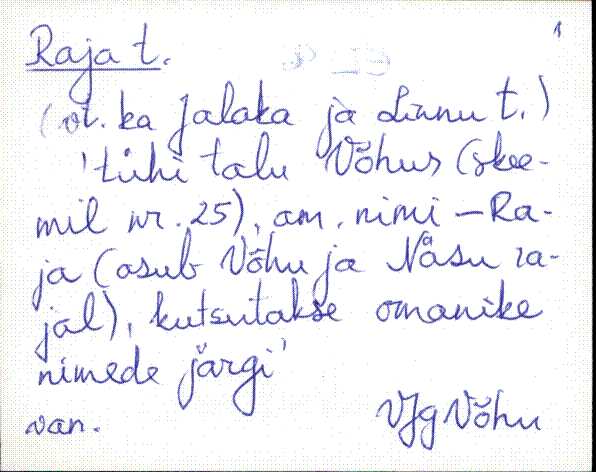 1
Raja t.
(vt. ka Jalaka ja Linnu t.)
'tühi talu Võhus (skee-
mil nr. 25), am. nimi – Ra-
ja (asub Võhu ja Näsu ra-
jal), kutsutakse omanike
nimede järgi'
van. VJg Võhu